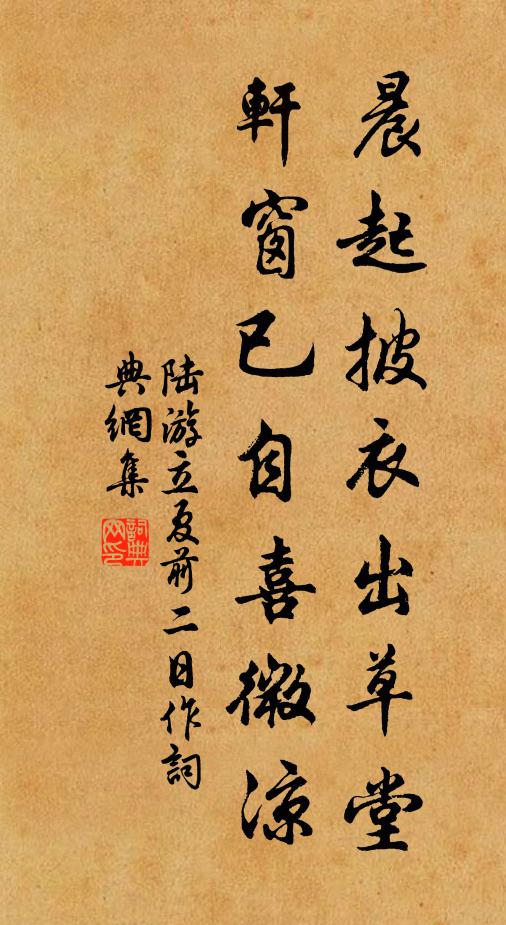 晨起披衣出草堂
軒窗已自喜微涼
陆游立夏前二日作詞
典網集
詞典網印